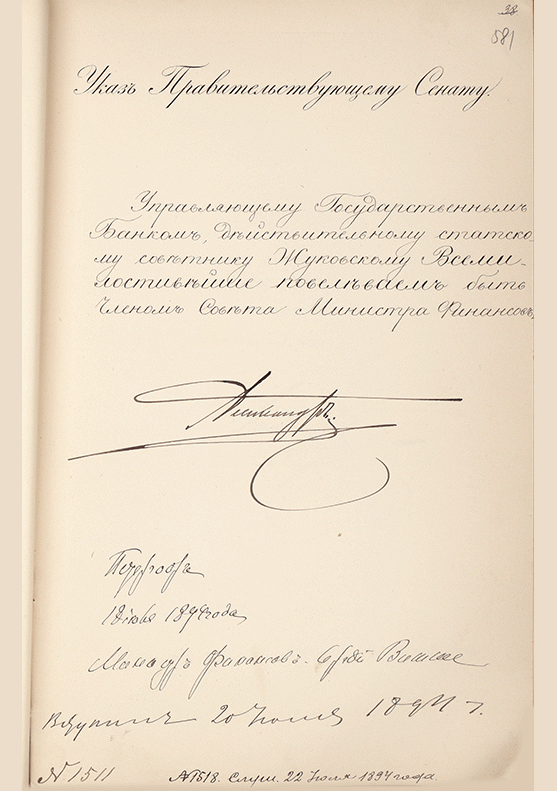 38
581
Указъ Правительствующему Сенату.
Управляющему Государственнымъ
Банкомъ, дѣйствительному статско-
му совѣтнику Жуковскому Всеми-
лостивѣйше повелѣваемъ быть
Членомъ Совѣта Министра Финансовъ.
Александръ.
Петергофъ
1894 года
Министръ Финансовъ Сергѣй Витте
20 Июля 1894 г.
№ 1511
№ 1518. Слуш. 22 Июля 1894 года.